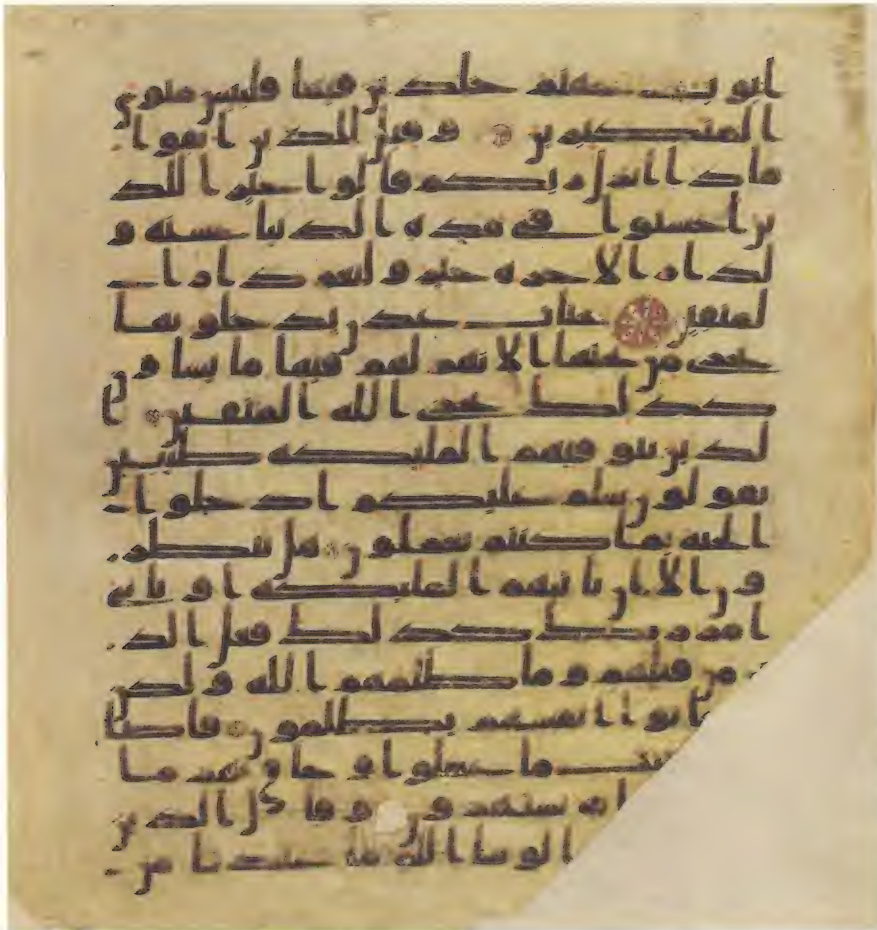 ابوب جهنم خلدين فيها فلبئس مثوى
المتكبرين وقيل للذين اتقوا
ماذا انزل ربكم قالوا خيرا للذ
ين احسنوا في هذه الدنيا حسنة و
لدار الاخرة خير ولنعم دار ا
لمتقين جنات عدن يدخلونها
تجري من تحتها الانهر لهم فيها ما يشاون
كذلك يجزي الله المتقين ا
لذين تتوفيهم الملئكة طيبين
يقولون سلم عليكم ادخلوا
الجنة بما كنتم تعملون هل ينظر
ون الا ان تاتيهم الملئكة او ياتي
امر ربك كذلك فعل الذ
ين من قبلهم وما ظلمهم الله ولكن
كانوا انفسهم يظلمون فاصا
سيت ما عملوا وحاق بهم ما
به يستهزون وقال الذين
لو شا الله ما عبدنا من